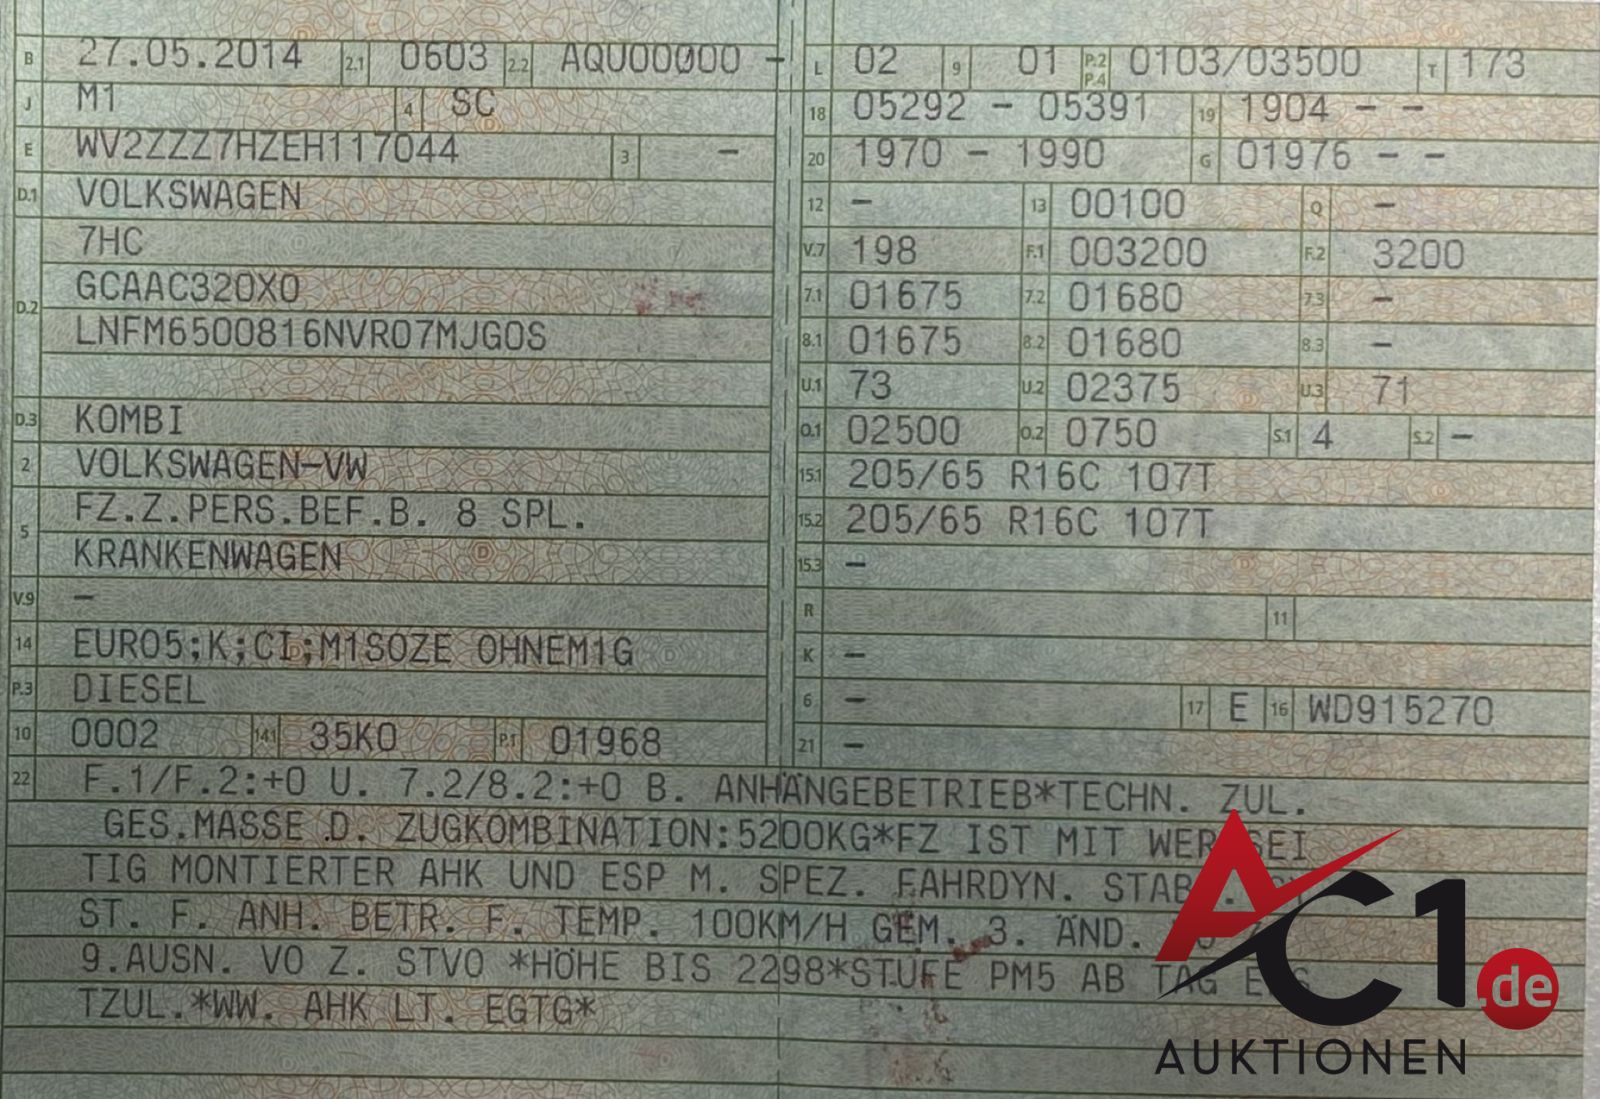 B 27.05.2014 2.1 0603 2.2 AQU00000 -
J M1 4 SC
E WV2ZZZ7HZEH117044 3 -
D.1 VOLKSWAGEN
7HC
D.2 GCAAC320X0
LNFM6500816NVR07MJGOS
D.3 KOMBI
2 VOLKSWAGEN-VW
5 FZ.Z.PERS.BEF.B. 8 SPL.
KRANKENWAGEN
V.9 -
14 EURO5;K;CI;M1SOZE OHNEM1G
P.3 DIESEL
10 0002 14.1 35K0 P.1 01968
L 02 9 01 P.2 P.4 0103/03500 T 173
18 05292 - 05391 19 1904 - -
20 1970 - 1990 G 01976 - -
12 - 13 00100 Q -
V.7 198 F.1 003200 F.2 3200
7.1 01675 7.2 01680 7.3 -
8.1 01675 8.2 01680 8.3 -
U.1 73 U.2 02375 U.3 71
O.1 02500 O.2 0750 S.1 4 S.2 -
15.1 205/65 R16C 107T
15.2 205/65 R16C 107T
15.3 -
R 11
K -
6 - 17 E 16 WD915270
21 -
22 F.1/F.2:+0 U. 7.2/8.2:+0 B. ANHÄNGEBETRIEB*TECHN. ZUL.
GES.MASSE D. ZUGKOMBINATION:5200KG*FZ IST MIT
TIG MONTIERTER AHK UND ESP M. SPEZ. FAHRDYN.
ST. F. ANH. BETR. F. TEMP. 100KM/H GEM. 3. ÄND.
9.AUSN. VO Z. STVO *HÖHE BIS 2298*STUFE PM5 AB TAG
TZUL.*WW. AHK LT. EGTG*
AC1.de
AUKTIONEN